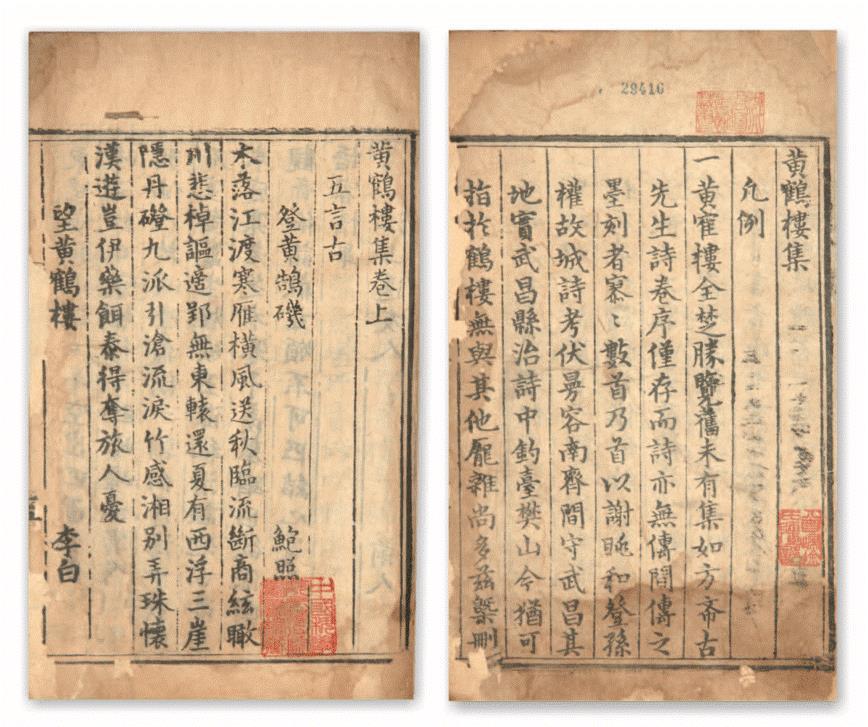 29416
黃鶴樓集
凡例
一黃寉樓全楚勝覽舊未有集如方齋古
先生詩卷序僅存而詩亦無傳間傳之
墨刻者寥〻數首乃首以謝眺和登孫
權故城詩考伏曼容南齊間守武昌其
地實武昌縣治詩中釣臺樊山今猶可
指於鶴樓無與其他厖雜尚多茲槩刪
黃鶴樓集卷上
五言古
登黃鵠磯 鮑照
木落江渡寒雁橫風送秋臨流斷商絃瞰
川悲棹謳適郢無東轅還夏有西浮三崖
隱丹磴九派引滄流淚竹感湘別弄珠懷
漢遊豈伊藥餌泰得奪旅人憂
望黃鶴樓 李白